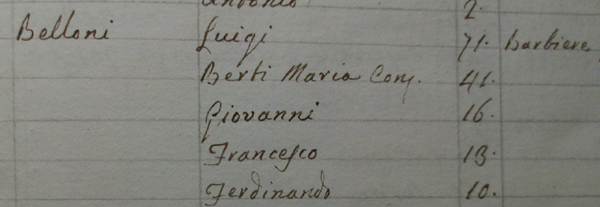 Antonio 2.
Belloni Luigi 71. Barbiere
Berti Maria Conj. 41.
Giovanni 16.
Francesco 13.
Ferdinando 10.